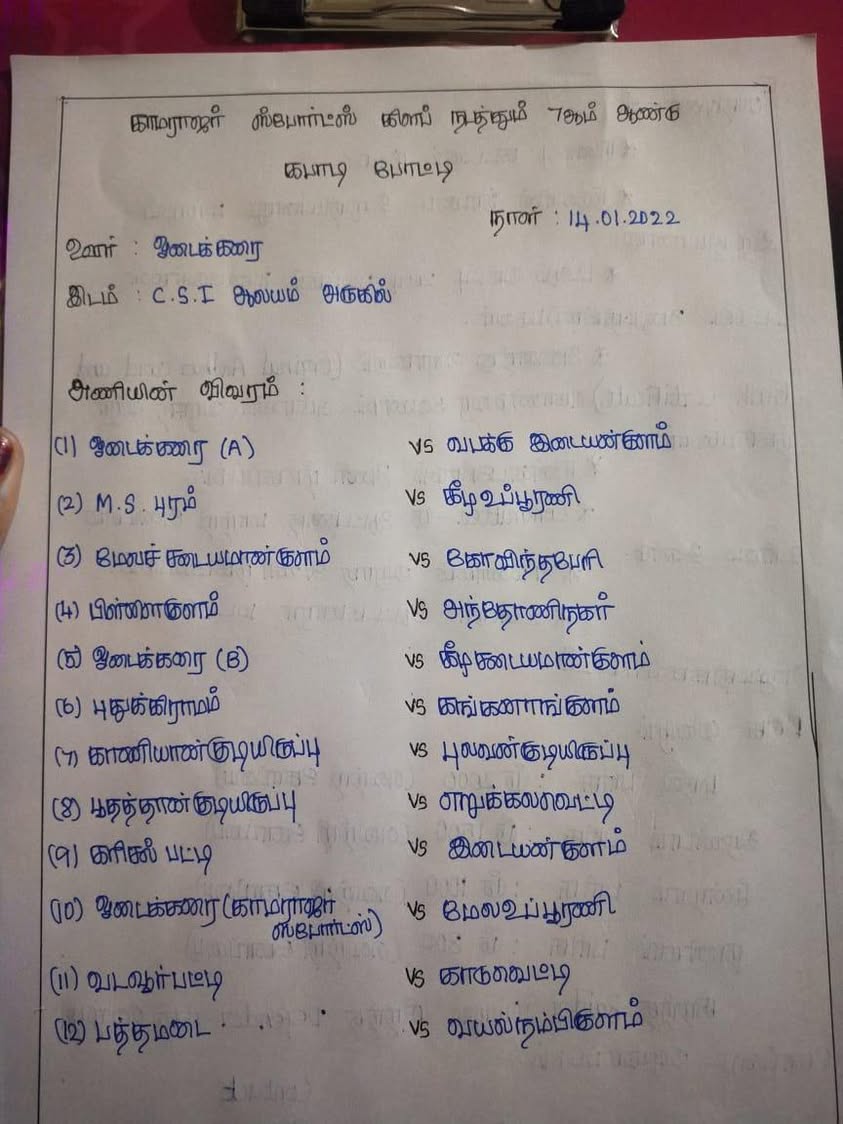 காமராஜர் ஸ்போர்ட்ஸ் கிளப் நடத்தும் 7ஆம் ஆண்டு
கபாடி போட்டி
நாள் : 14.01.2022
ஊர் : ஓடைக்கரை
இடம் : C.S.I ஆலயம் அருகில்
அணியின் விவரம் :
(1) ஓடைக்கரை (A) vs வடக்கு இடையன்குளம்
(2) M.S. புரம் vs கீழஉப்பூரணி
(3) மேலச் சடையமான்குளம் vs கோவிந்தபேரி
(4) பிள்ளைகுளம் vs அந்தோணிநகர்
(5) ஓடைக்கரை (B) vs கீழசடையமான்குளம்
(6) புதுக்கிராமம் vs கங்கனாங்குளம்
(7) காணியாண்குடியிருப்பு vs புலவன்குடியிருப்பு
(8) பூதத்தான்குடியிருப்பு vs எறுக்கலவெட்டி
(9) கரிசல் பட்டி vs இடையன்குளம்
(10) ஓடைக்கரை (காமராஜர் vs மேலஉப்பூரணி
ஸ்போர்டஸ்)
(11) வடவூர்பட்டி vs காடுவெட்டி
(12) பத்தமடை vs வயல்நம்பிகுளம்